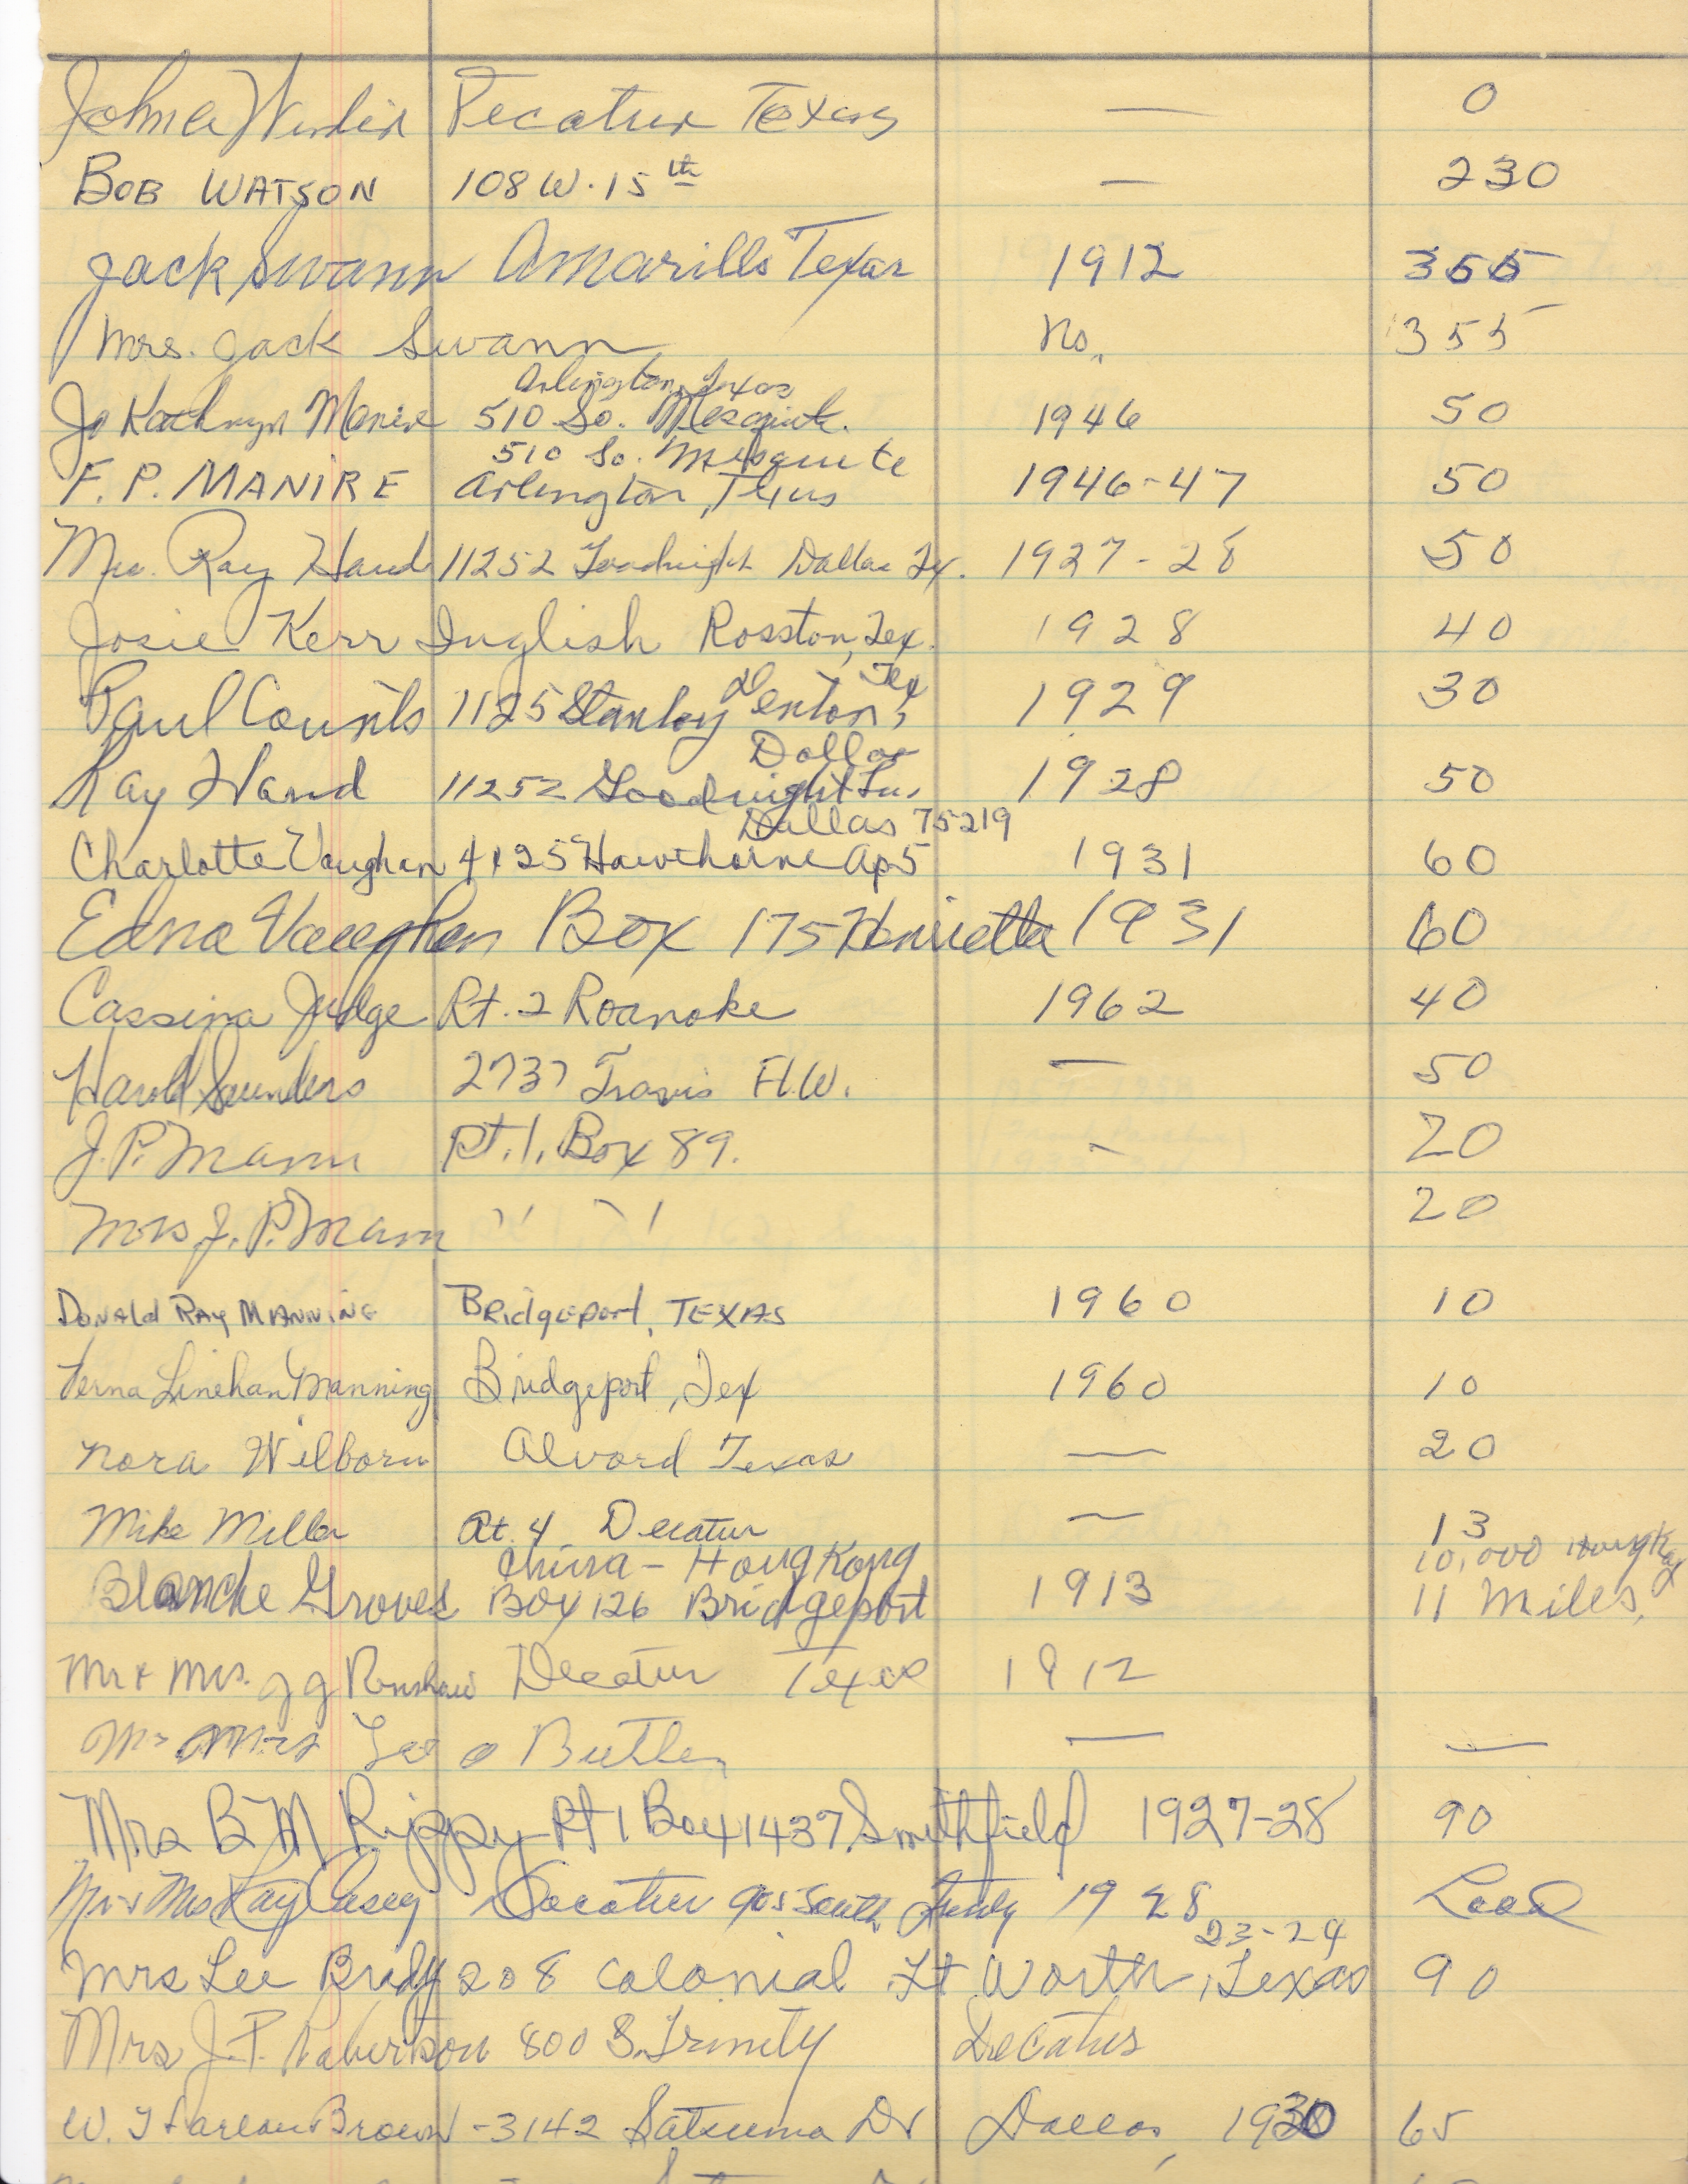 Decatur Texas — 0
BOB WATSON 108 W. 15th — 230
Jack Swann Amarillo Texas 1912 355
Mrs. Jack Swann No. 355
Arlington, Texas
Jo Kathryn Manire 510 So. Mesquite. 1946 50
510 So. Mesquite
F. P. MANIRE Arlington, Texas 1946-47 50
Mrs. Ray Hand 11252 Goodnight Dallas Tx. 1927-28 50
Josie Kerr Inglish Rosston, Tex. 1928 40
Tex
Paul Counts 1125 Stanley Denton, 1929 30
Dallas
Ray Hand 11252 Goodnight Ln. 1928 50
Dallas 75219
Charlotte Vaughan 4125 Hawthorne Ap5 1931 60
Edna Vaughan Box 175 Henrietta 1931 60
Cassina Judge Rt. 2 Roanoke 1962 40
Harold Saunders 2737 Travis Ft.W. — 50
J. P. Mann Rt. 1, Box 89. - 20
Mrs J. P. Mann '' '' 20
DONALD RAY MANNING BRidgEport, TEXAS 1960 10
Verna Linehan Manning Bridgeport, Tex 1960 10
Nora Wilborn Alvord Texas — 20
Mike Miller Rt. 4 Decatur — 13
China - Hong Kong 10,000 Hong Kong
Blanche Groves BOX 126 Bridgeport 1913 11 Miles.
Mr & Mrs. J J Renshaw Decatur Texas 1912
Mr Mrs Leo Butler — —
Mrs B M Rippy Rt 1 Box 1437 Smithfield 1927-28 90
Mr & Mrs Ray Casey Decatur 905 South Trinity 1928 Local
23-24
Mrs Lee Brady 208 Colonial Ft Worth, Texas 90
Mrs J. P. Robertson 800 S. Trinity Decatur
W. Harlan Brown - 3142 Satsuma Dr Dallas, 1930 65